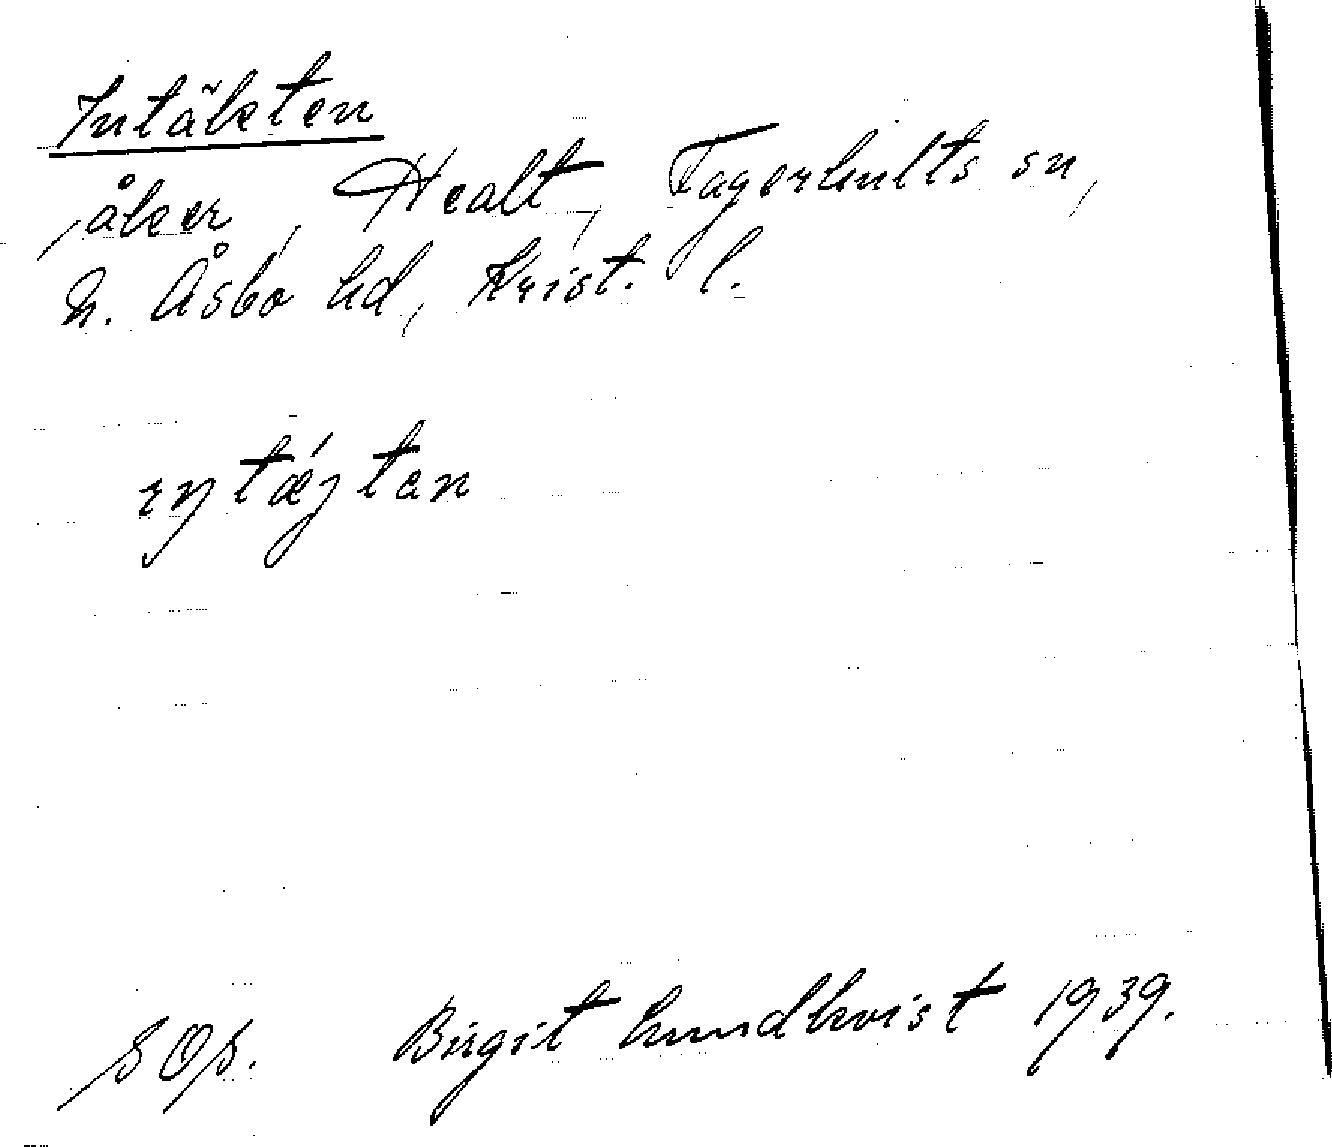 Intäkten
åker, Healt, Fagerhults sn,
N. Åsbo hd, Krist. l.
Birgit Lundkvist 1939.